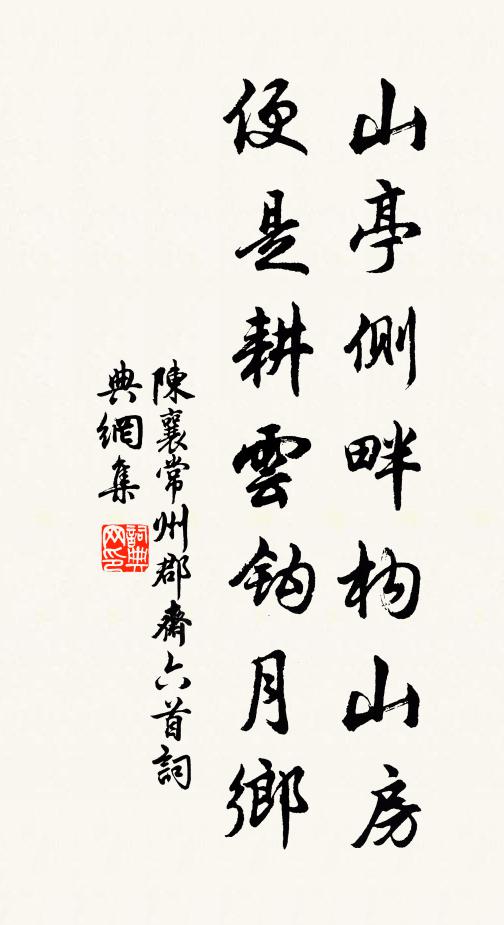 山亭側畔构山房
便是耕雲鈎月鄉
陳襄常州郡齋六首詞
典網集
詞典网印